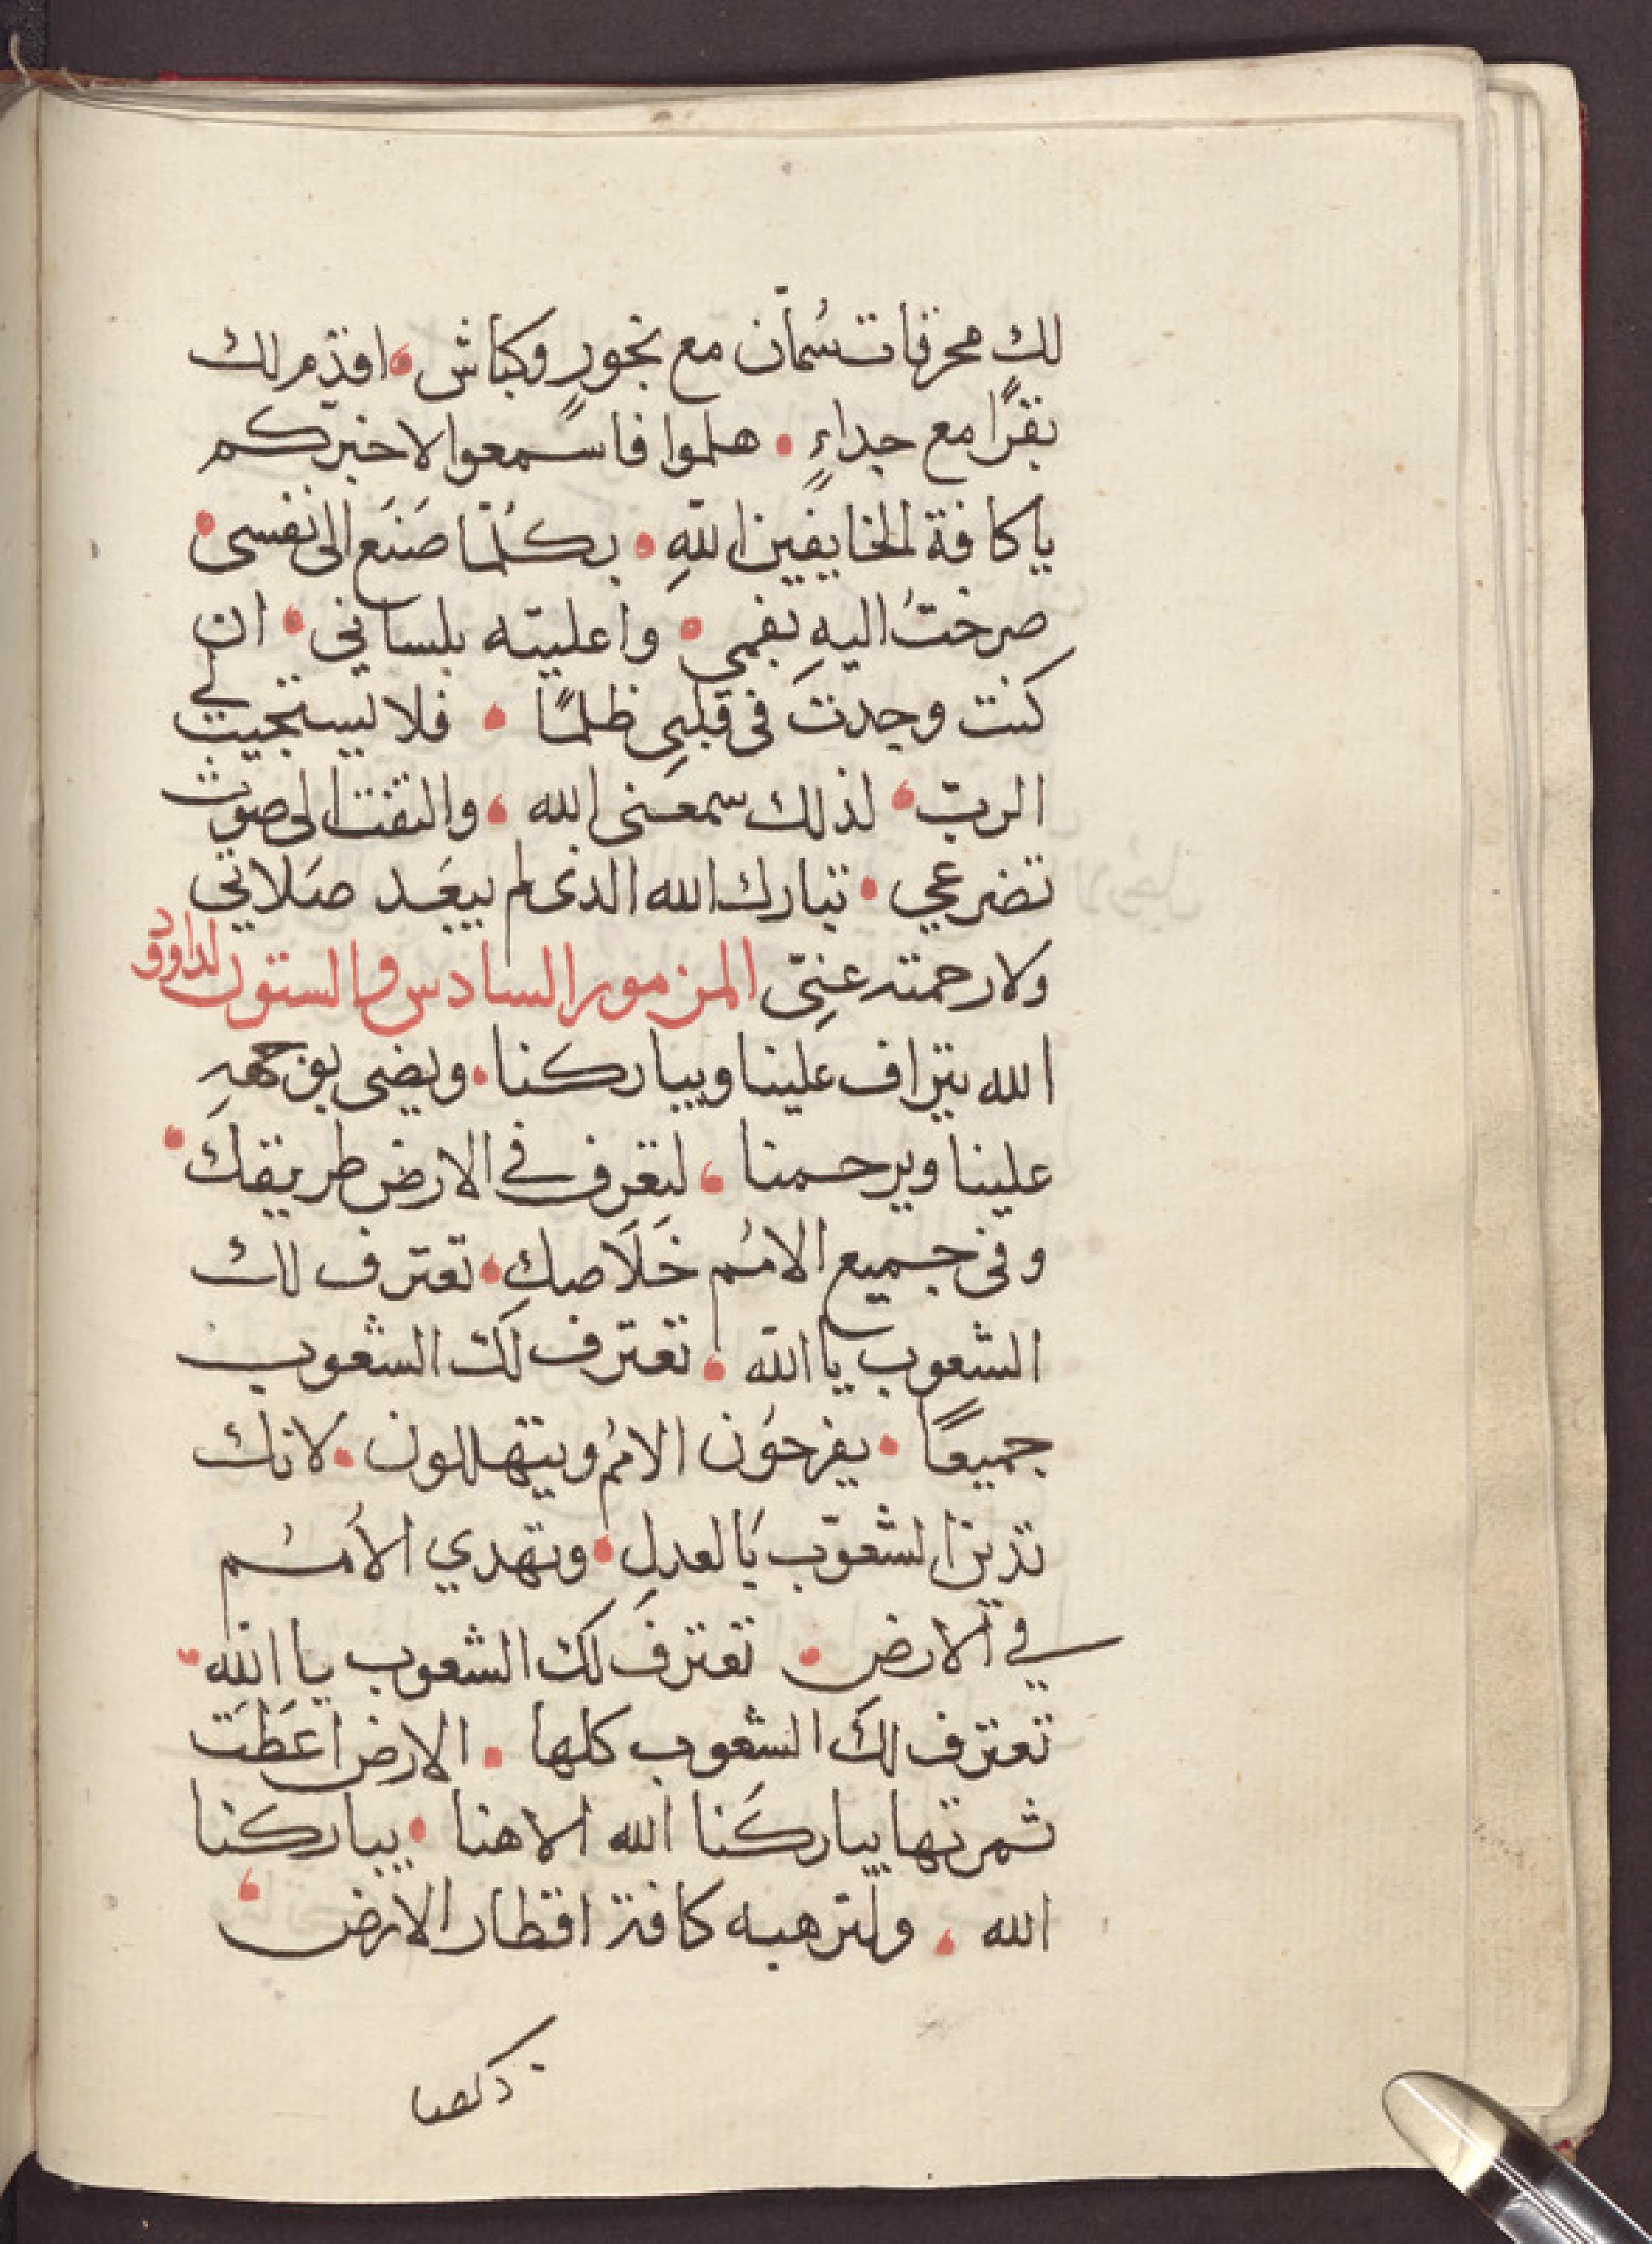 لك محرقات سُمان مع بخورٍ وكباش • اقدّم لك
بقرًا مع جداءٍ • هلموا فاسمعوا لاخبركم
ياكافة الخايفين اللهِ • بكلمّا صَنَع الى نفسى •
صرختُ اليهِ بفمي • واعليته بلساني • ان
كنت وجدتَ فى قلبىِ ظلمًا • فلا يستجيب لي
الربّ • لذلك سمعنى الله • والتفت الى صوت
تضرعي • تبارك الله الدى لم يبعَد صَلاتي
ولا رحمته عنىّ المزمور السادس والستون لداوود
الله يتراف علينا ويباركنا • ويضى بوجههِ
علينا ويرحمنا • لتعرف في الارض طريقك •
وفى جميع الامُم خَلَاصك • تعترف لك
الشعوب يا الله • تعترف لك الشعوب
جميعًا • يفرحوُن الامُم ويتهللون • لانك
تدين الشعوّب بَالعدلِ • وتهدي الأمُم
في الارض • تعترفَ لك الشعوب يا الله •
تعترف لكَ الشعوب كلها • الارض اعَطَت
ثمرتها يباركنا الله الاهنا • يباركنا
الله • ولترهبه كافة اقطار الارض •